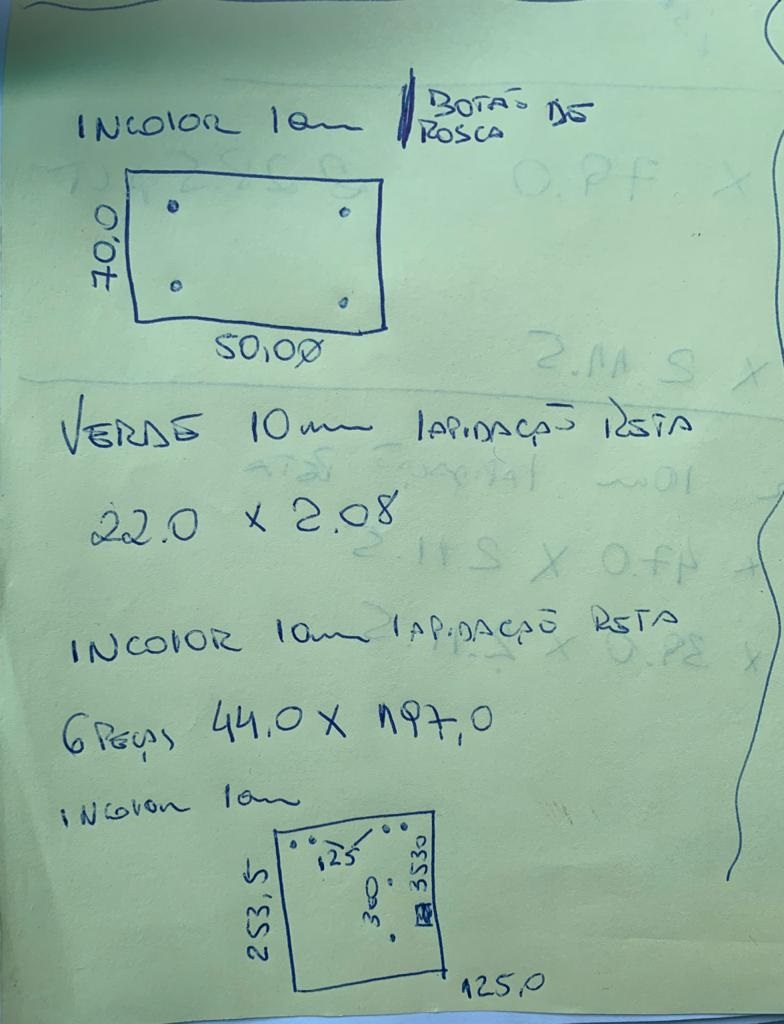 INCOLOR 10mm / BOTÃO DE
ROSCA
70,0
50,00
VERDE 10mm LAPIDAÇÃO RETA
22.0 X 2.08
INCOLOR 10mm LAPIDAÇÃO RETA
6 PEÇAS 44.0 X 197,0
INCOLOR 10mm
125
253,5
300
3530
125,0